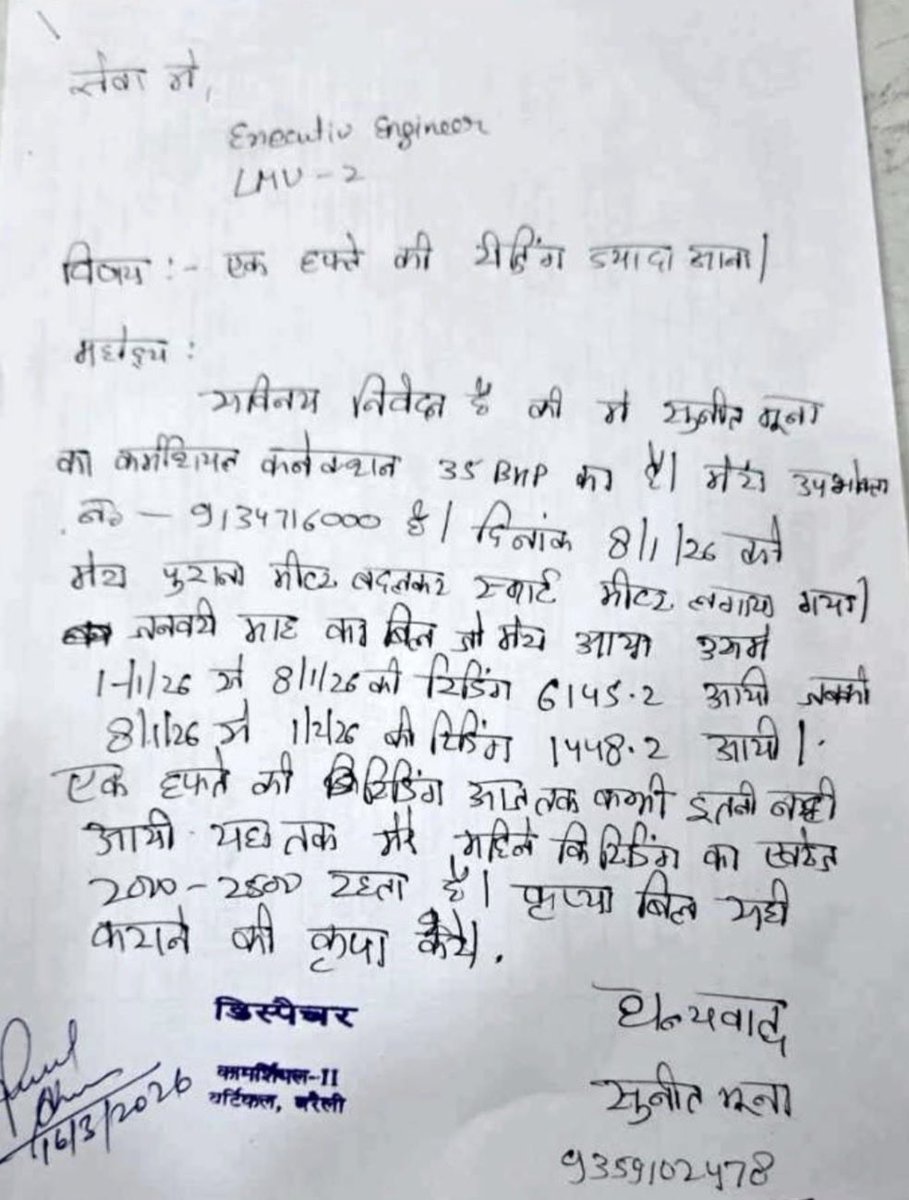 सेवा मे,
Executiv Engineer
LMV - 2
विषय :- एक हफ्ते की रीडिंग ज्यादा आना|
महोदय :
सविनय निवेदन है की मे सुनीत मूना
का कर्मशियल कनेक्शन 35 BHP का है| मेरा उपभोक्ता
न० - 9134716000 है| दिनांक 8/1/26 को
मेरा पुराना मीटर बदलकर स्मार्ट मीटर लगाया गया|
जनवरी माह का बिल जो मेरा आया उसमे
1/1/26 से 8/1/26 की रिडिंग 6145.2 आयी जबकी
8/1/26 से 1/2/26 की रिडिंग 1448.2 आयी|
एक हफते की रिडिंग आज तक कभी इतनी नही
आयी यहा तक मेरे महिने कि रिडिंग का
2000-2500 रहता है| कृप्या बिल सही
कराने की कृपा करे|.
धन्यवाद
सुनीत मूना
9359102478
डिस्पैचर
कामर्शियल-II
वर्टिकल, बरेली
16/3/2026